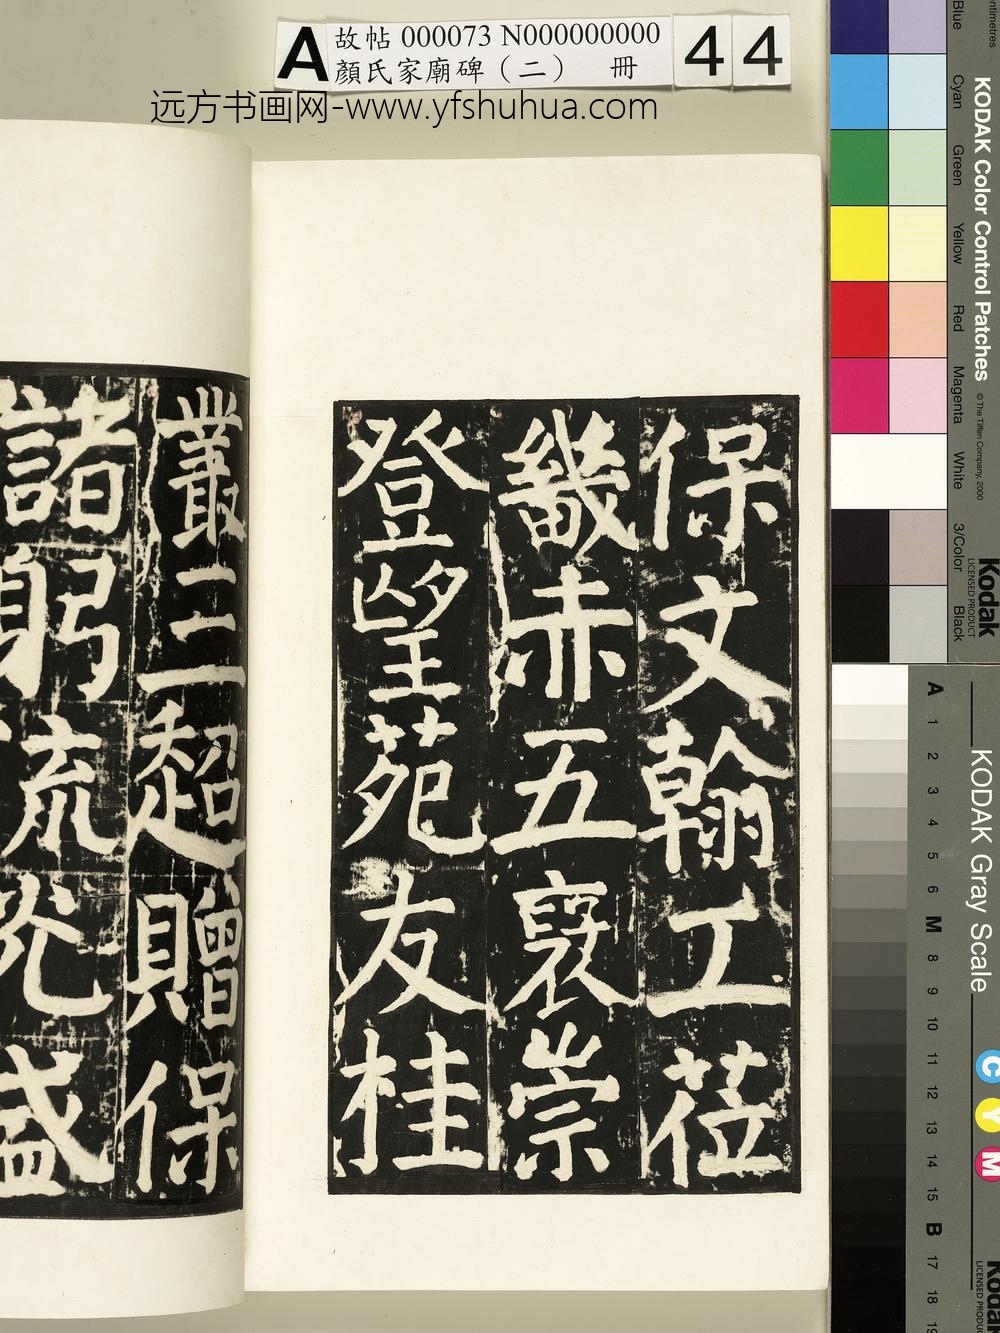 A
故帖 000073 N000000000
顏氏家廟碑（二） 冊
44
远方书画网-www.yfshuhua.com
保文翰工莅
畿赤五襃崇
登望苑友桂
叢三超贈保
諸躬流㳘盛
Centimetres
Blue
Cyan
Green
Yellow
Red
Magenta
White
3/Color
Black
KODAK Color Control Patches
© The Tiffen Company, 2000
Kodak
LICENSED PRODUCT
KODAK Gray Scale
A
1
2
3
4
5
6
M
8
9
10
11
12
13
14
15
B
17
18
19
C
Y
M
Kodak
LICENSED PRODUCT